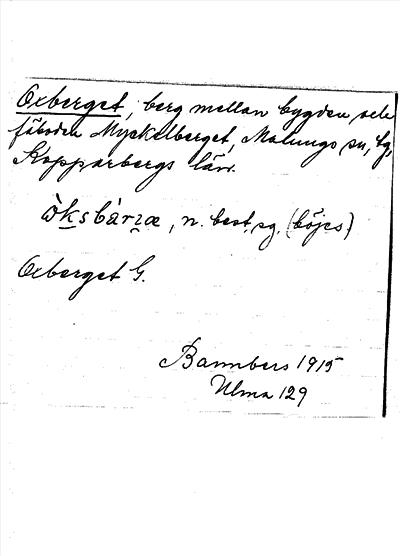 Oxberget, berg mellan bygden och
fäboden Myckelberget, Malungs sn,
Kopparbergs län.
ò̀ksbàrzæ, n. best. sg. (böjes)
Oxberget G.
Bannbers 1915
Ulma 129